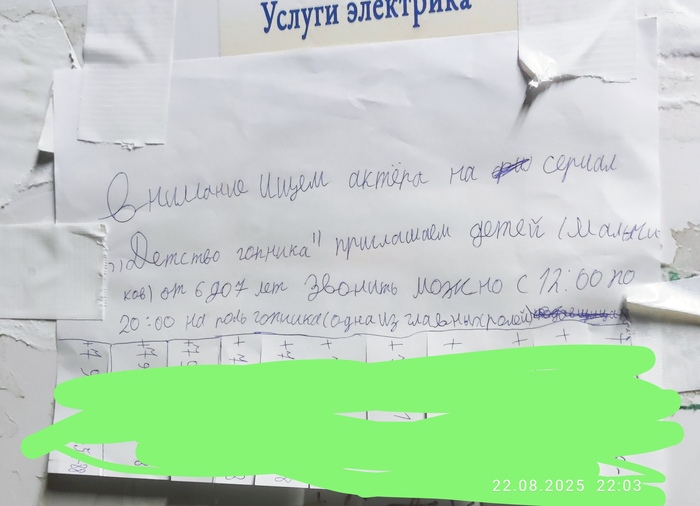 Услуги электрика
Внимание ищем актёра на сериал
"Детство гопника" приглашаем детей (мальчи
ков) от 6 до 7 лет Звонить можно с 12:00 по
20:00 на роль гопника (одна из главных ролей)
22.08.2025 22:03